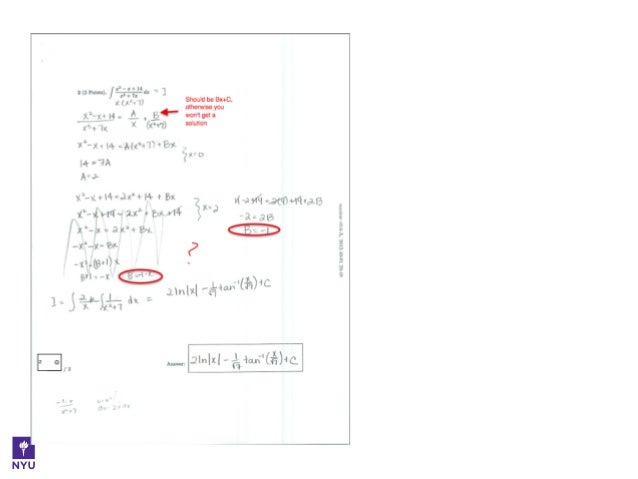 2 (3 Points). ∫ x²-x+14 / x³+7x dx = I
x(x²+7)
x²-x+14 / x³+7x = A/x + B/(x²+7)
Should be Bx+C,
otherwise you
won't get a
solution
x²-x+14 = A(x²+7)+Bx
14 = 7A } x=0
A=2
x²-x+14 = 2x²+14 + Bx
x²-x+14 = 2x² + Bx+14 } x=2
x²-x = 2x²+Bx
-x²-x = Bx
B=-1-x
-2 = 2B
B = -1
?
I = ∫ 2/x ∫ 1/x²+7 dx = 2ln|x| - 1/√7 tan⁻¹(x/√7)+C
Answer: 2ln|x| - 1/√7 tan⁻¹(x/√7)+C
/3
NYU